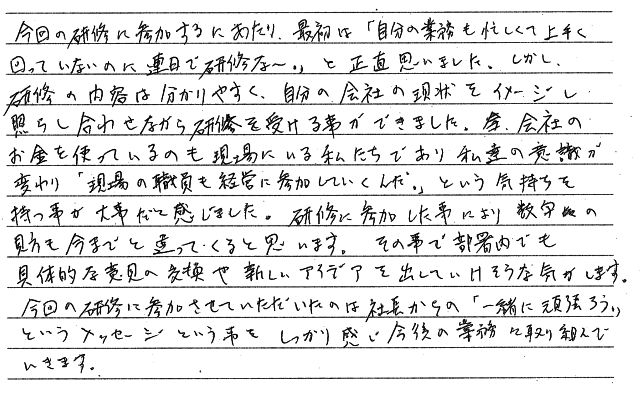 今回の研修に参加するにあたり、最初は「自分の業務も忙しくて上手く
回っていないのに連日で研修な〜。」と正直思いました。しかし、
研修の内容は分かりやすく、自分の会社の現状をイメージし
照らし合わせながら研修を受ける事ができました。今、会社の
お金を使っているのも現場にいる私たちであり私達の意識が
変わり「現場の職員も経営に参加していくんだ。」という気持ちを
持つ事が大事だと感じました。研修に参加した事により数字の
見方も今までと違ってくると思います。その事で部署内でも
具体的な意見の交換や新しいアイデアを出していけそうな気がします。
今回の研修に参加させていただいたのは社長からの「一緒に頑張ろう。」
というメッセージという事をしっかり感じ今後の業務に取り組んで
いきます。